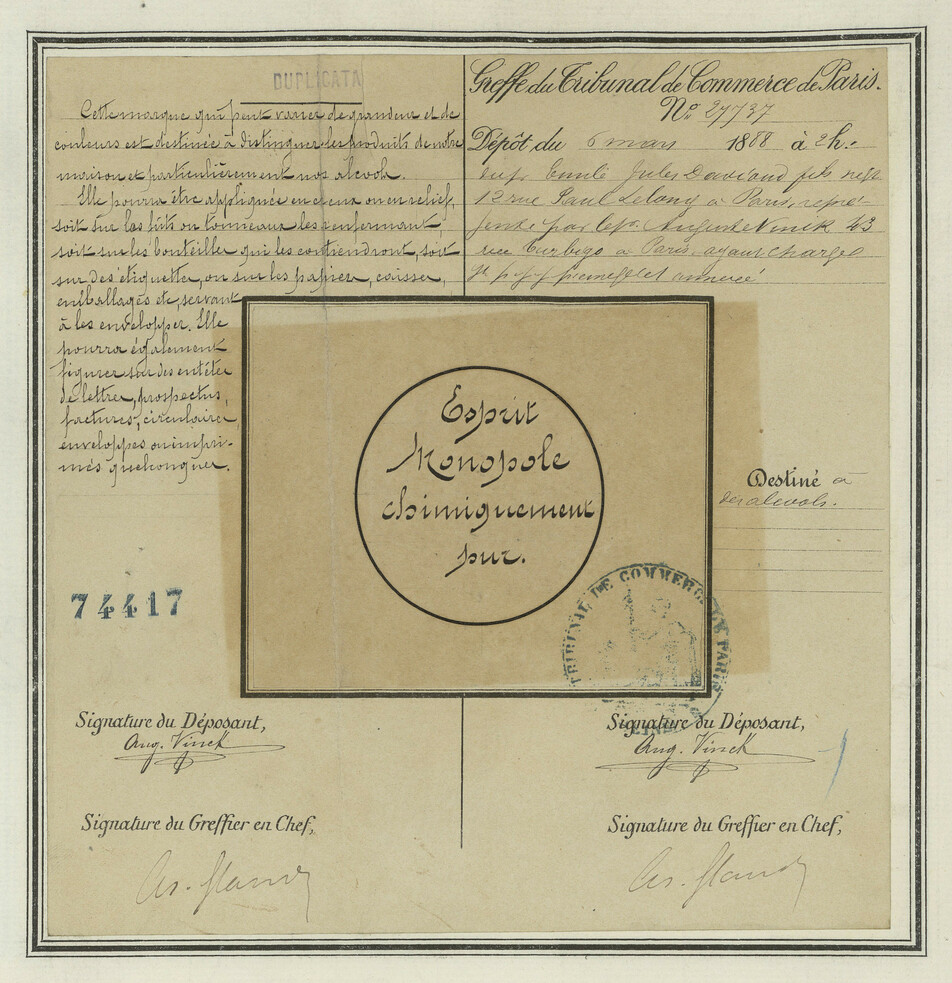 DUPLICATA
Cette marque qui peut varier de grandeur et de
couleurs est destinée à distinguer les produits de notre
maison et particulièrement nos alcools.
Elle pourra être appliquée en creux ou en relief,
soit sur les fûts ou tonneaux les renfermant,
soit sur les bouteilles qui les contiendront, soit
sur des étiquettes, ou sur les papiers, caisses,
emballages etc, servant
à les envelopper. Elle
pourra également
figurer sur des entêtes
de lettres, prospectus,
factures, circulaires,
enveloppes ou impri-
més quelconques.
74417
Signature du Déposant,
Aug. Vinck
Signature du Greffier en Chef,
Greffe du Tribunal de Commerce de Paris.
N° 27737
Dépôt du 6 mars 1888 à 2h.
Emile Jules Daviaud fils
12 rue Paul Lelong à Paris, repré-
senté par Auguste Vinck 43
rue Turbigo à Paris, ayant charge
Esprit
Monopole
chimiquement
pur.
Destiné à
des alcools.
TRIBUNAL DE COMMERCE DE PARIS
Signature du Déposant,
Aug. Vinck
Signature du Greffier en Chef,